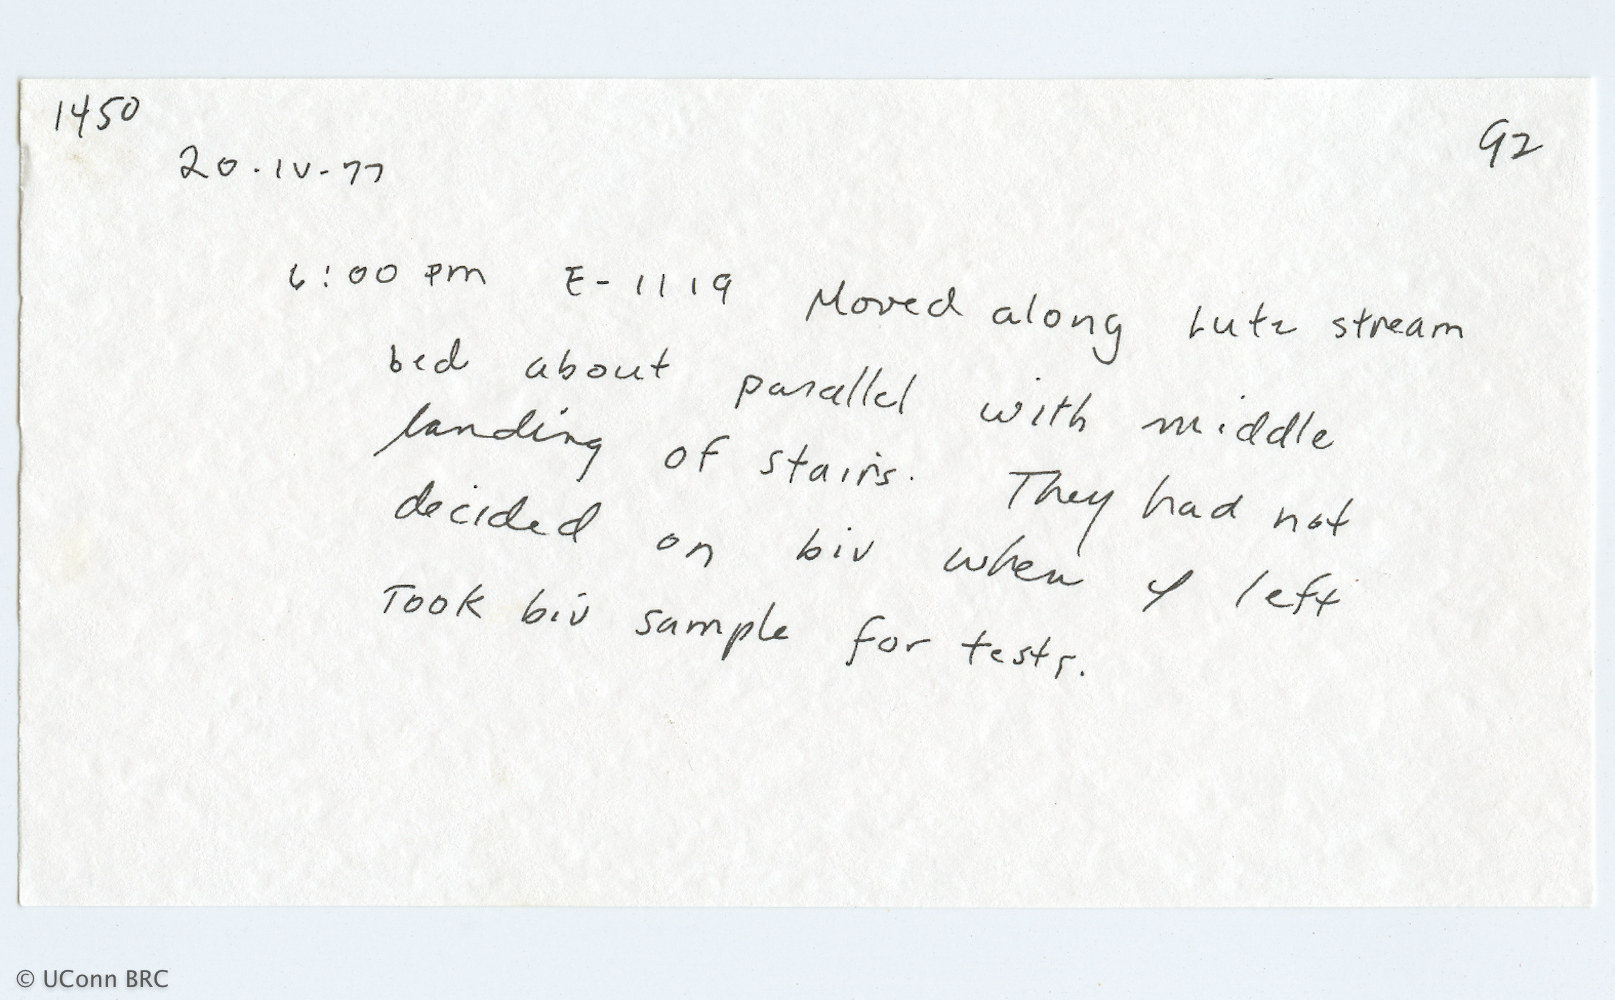 1450
92
20.IV-77
6:00 pm E-1119 Moved along Lutz stream
bed about parallel with middle
landing of stairs. They had not
decided on biv when I left
Took biv sample for tests.
© UConn BRC